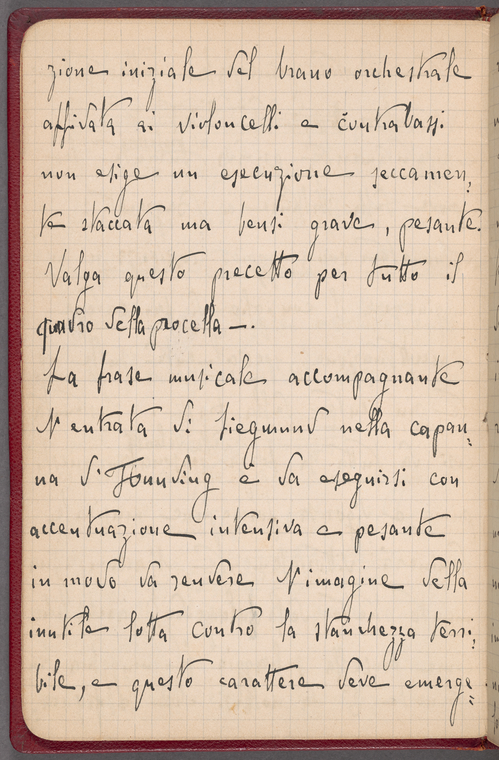 zione iniziale del brano orchestrale
affidata ai violoncelli e contrabassi
non esige un esecuzione seccamen=
te staccata ma bensi grave, pesante.
Valga questo precetto per tutto il
quadro della procella —.
La frase musicale accompagnante
l'entrata di Siegmund nella capan=
na d'Hounding è da eseguirsi con
accentuazione intensiva e pesante
in modo da rendere l'imagine della
inutile lotta contro la stanchezza terri=
bile, e questo carattere deve emerge=